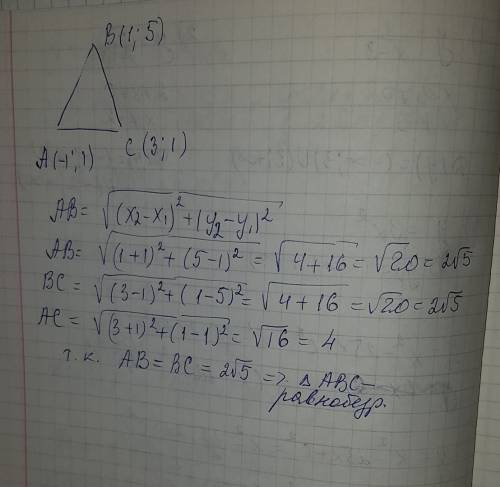 B(1; 5)
A(-1; 1)
C(3; 1)
AB = √((x₂-x₁)² + (y₂-y₁)²
AB = √((1+1)² + (5-1)² = √(4+16) = √20 = 2√5
BC = √((3-1)² + (1-5)² = √(4+16) = √20 = 2√5
AC = √((3+1)² + (1-1)² = √16 = 4
т.к. AB = BC = 2√5 => △ABC-
равнобедр.